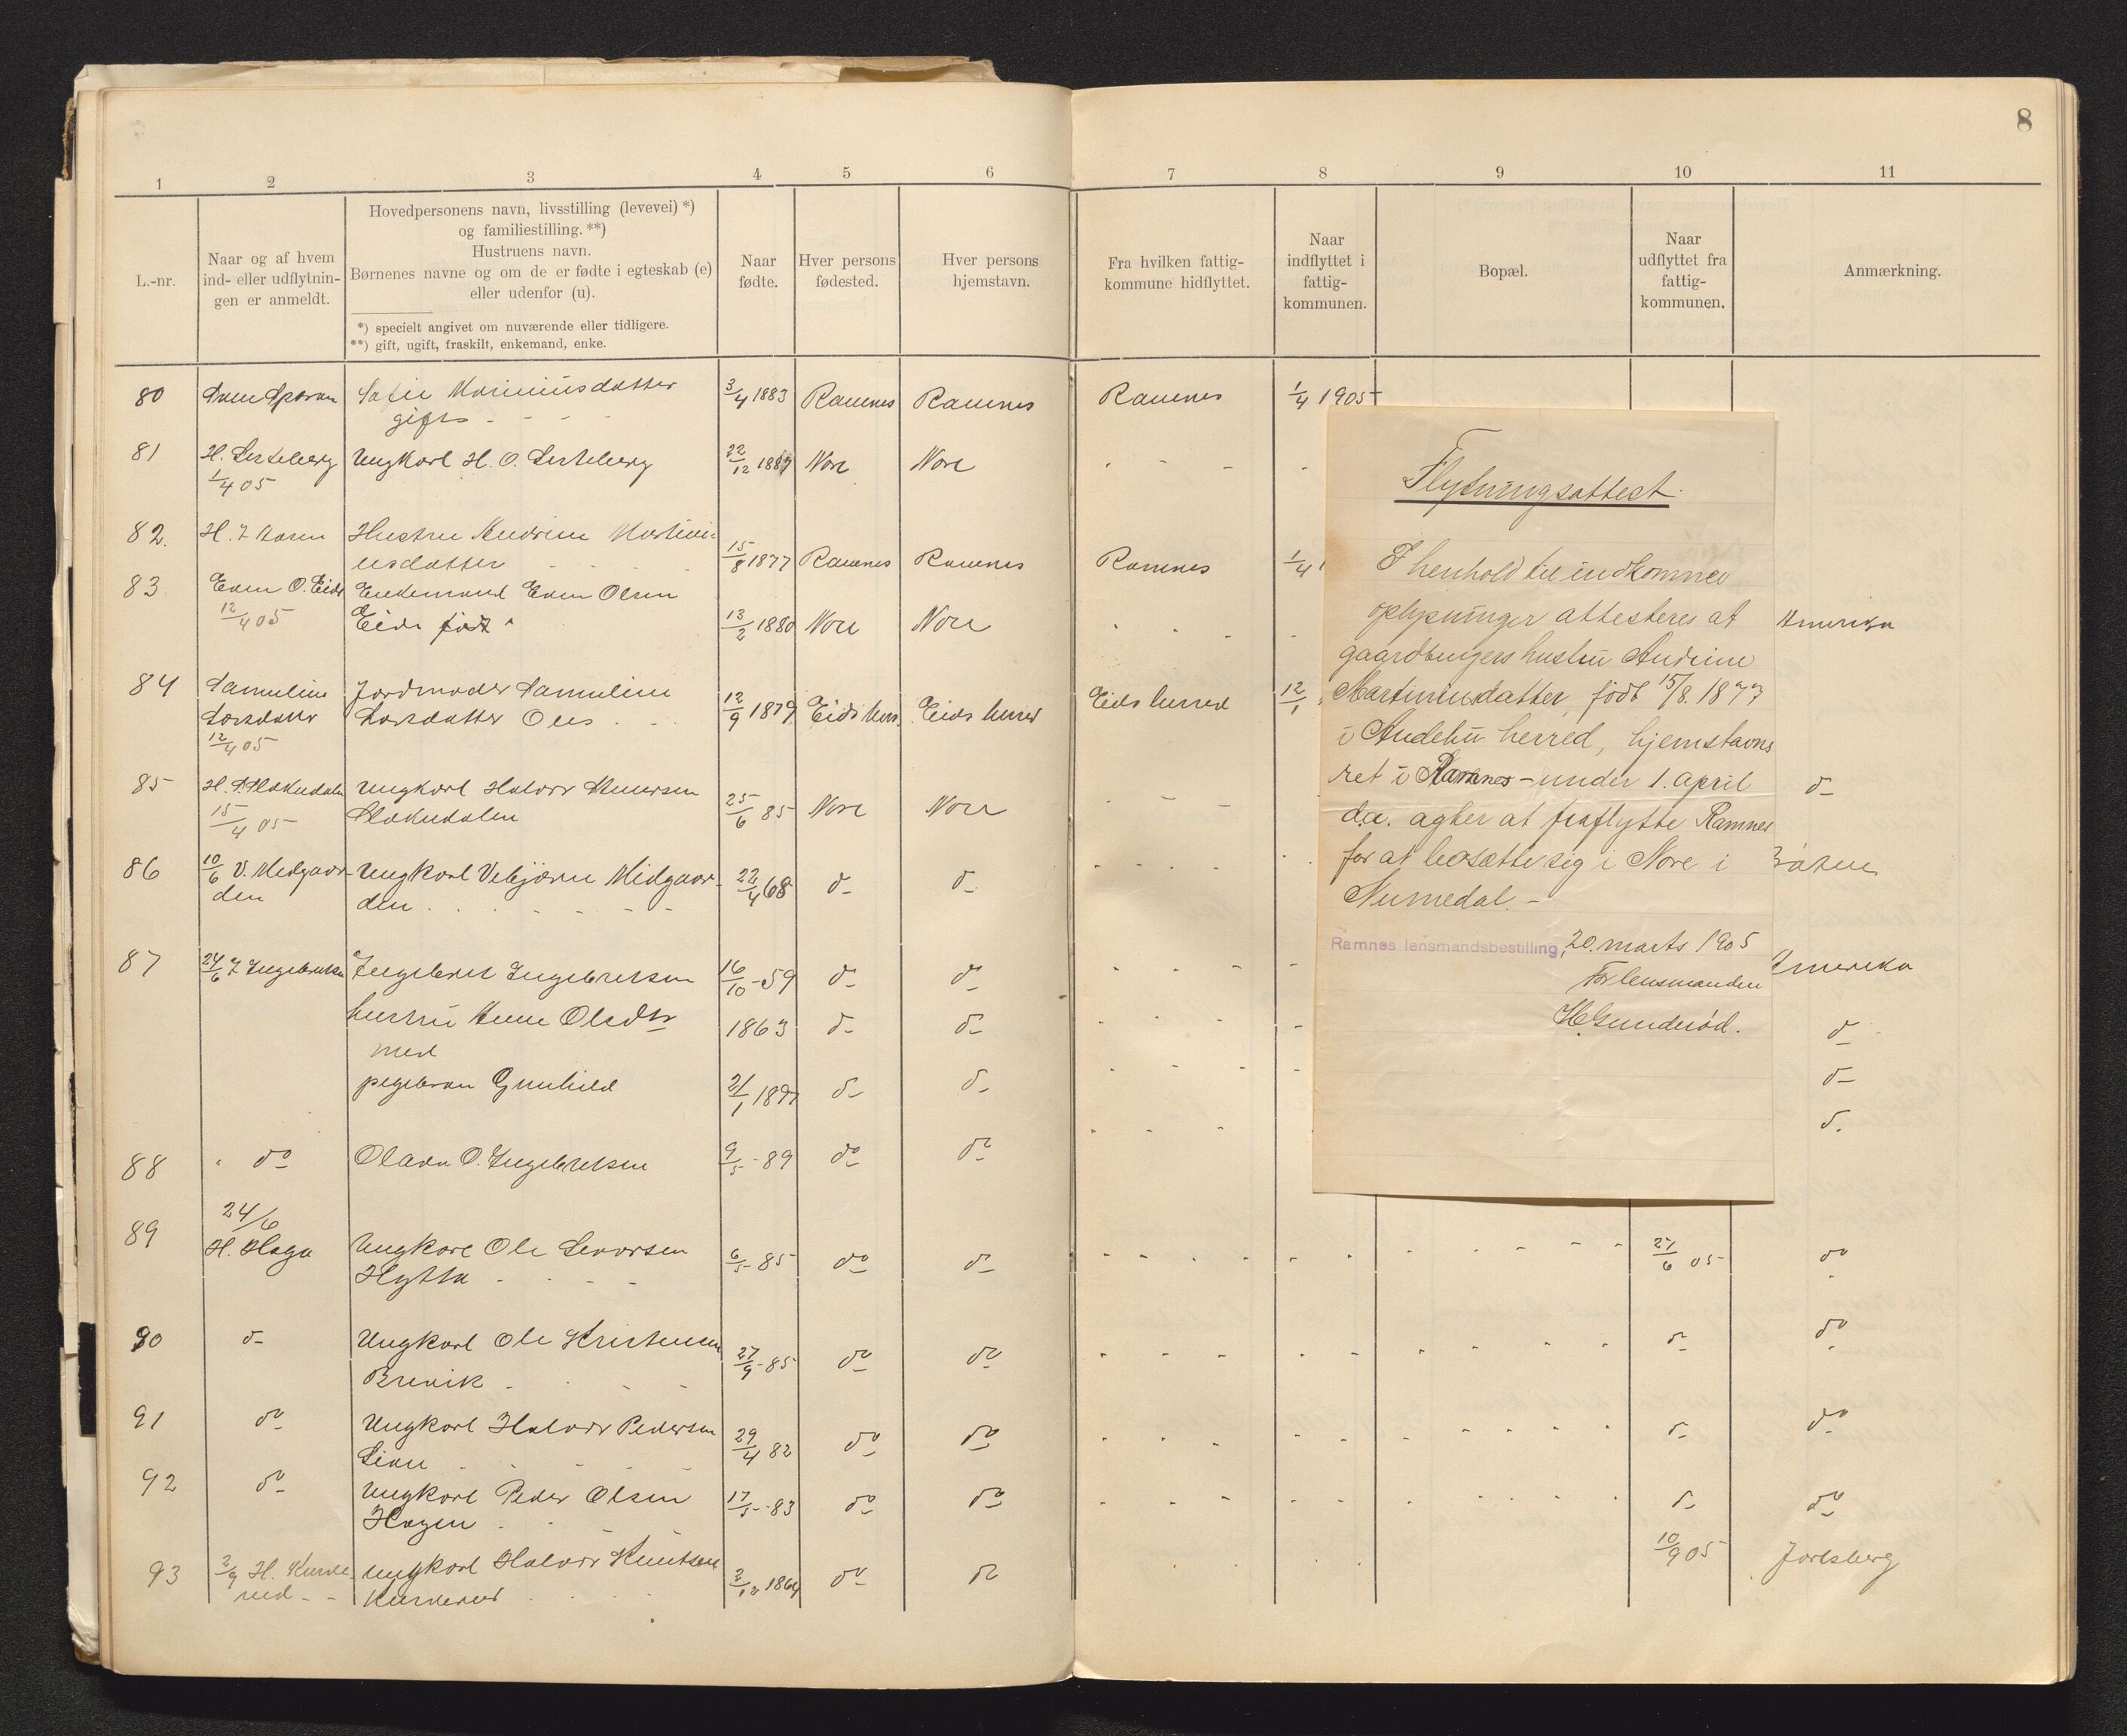 8
1 2 3 4 5 6 7 8 9 10 11
L.-nr.
Naar og af hvem
ind- eller udflytnin-
gen er anmeldt.
Hovedpersonens navn, livsstilling (levevei) *)
og familiestilling. **)
Hustruens navn.
Børnenes navne og om de er fødte i egteskab (e)
eller udenfor (u).
*) specielt angivet om nuværende eller tidligere.
**) gift, ugift, fraskilt, enkemand, enke.
Naar
fødte.
Hver persons
fødested.
Hver persons
hjemstavn.
Fra hvilken fattig-
kommune hidflyttet.
Naar
indflyttet i
fattig-
kommunen.
Bopæl.
Naar
udflyttet fra
fattig-
kommunen.
Anmærkning.
80 Sofie Mariniusdatter 3/4 1883 Ramnes Ramnes Ramnes 1/4 1905
gift - - -
81 H. Serteberg Ungkarl H. O. Serteberg 22/12 1887 Nore Nore - - -
1/4 05
82. Hustru Andrine Martini-
usdatter 15/8 1877 Ramnes Ramnes Ramnes 1/4
83 Even O. Eide Enkemand Even Olsen
12/4 05 Eide født 13/2 1880 Nore Nore Amerika
84 Samuline Jordmoder Samuline
Larsdatter Larsdatter Oles 12/9 1879 Eids herr. Eids herred Eids herred 12/1
12/4 05
85 Ungkarl Halvor
15/4 05 25/6 85 Nore Nore do
86 10/6 V. Midgaar- Ungkarl Vebjørn Midgaar-
den den 22/4 68 do do
87 24/6 I. Ingebretsen Ingebret Ingebretsen 16/10-59 do do Amerika
hustru Anne Olsdtr 1863 do do do
med
plegebarn Gunhild 21/1 1897 do do do
88 do Olava O. Ingebretsen 9/5-89 do do do
24/6
89 H. Haga Ungkarl Ole Levorsen
Hytta 6/5-85 do do 27/6 05 do
90 do Ungkarl Ole Kristensen
Brevik 27/9-85 do do do do
91 do Ungkarl Halvor Pedersen
Lien 29/4 82 do do do do
92 do Ungkarl Peder Olsen
Hagen 17/5-83 do do do do
93 2/9 H. Ungkarl Halvor Knutsen
rud 2/12 1864 do do 10/9 05 Jarlsberg
Flytningsattest.
I henhold til indkomne
oplysninger attesteres at
gaardbrugers hustru Andrine
Martiniusdatter, født 15/8. 1877
i Andebu herred, hjemstavns
ret i Ramnes - under 1. april
d.a. agter at fraflytte Ramnes
for at bosætte sig i Nore i
Numedal. -
Ramnes lensmandsbestilling, 20. marts 1905
For lensmanden
H. Gunderød.